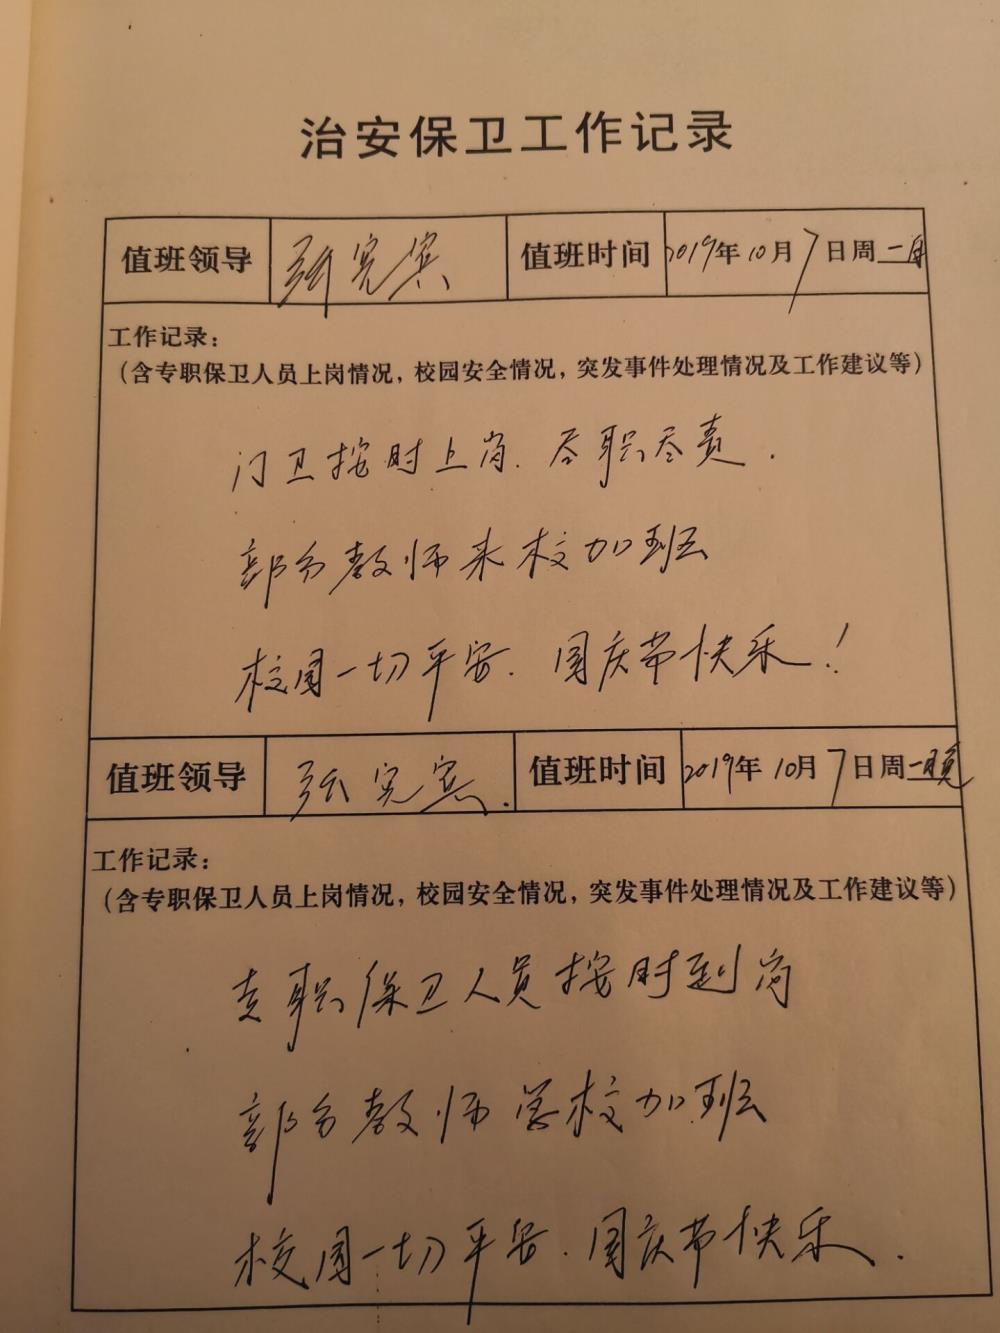 治安保卫工作记录
值班领导 张宪宾 值班时间 2019年10月7日周一
工作记录：
（含专职保卫人员上岗情况，校园安全情况，突发事件处理情况及工作建议等）
门卫按时上岗．尽职尽责．
部分教师来校加班
校园一切平安．国庆节快乐！
值班领导 张宪宾． 值班时间 2019年10月7日周一晚
工作记录：
（含专职保卫人员上岗情况，校园安全情况，突发事件处理情况及工作建议等）
专职保卫人员按时到岗
部分教师学校加班
校园一切平安．国庆节快乐．